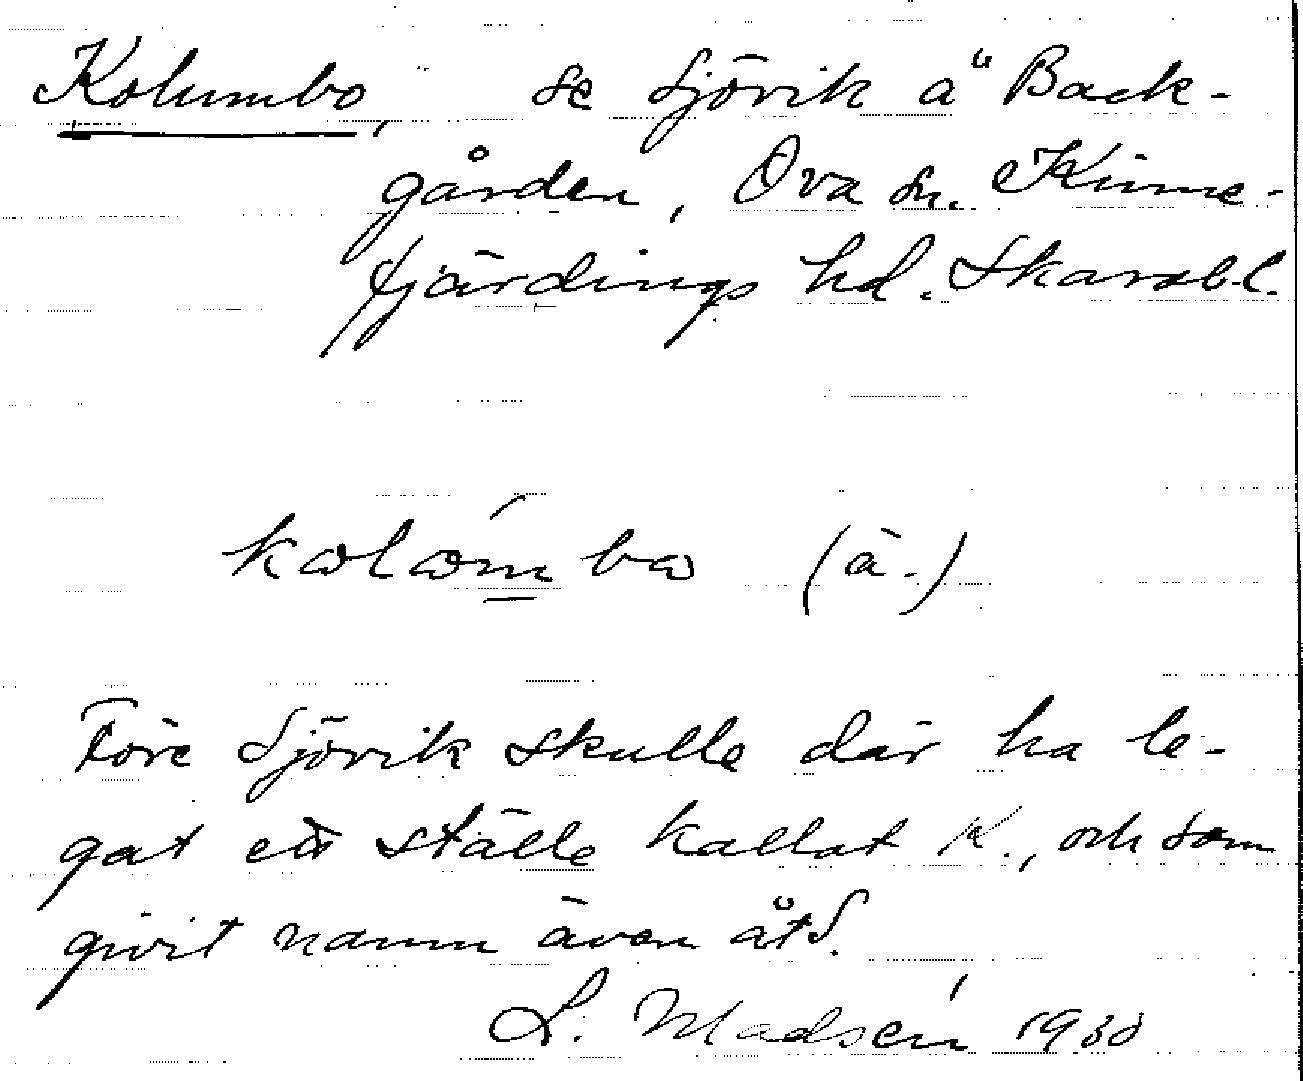 Kolumbo, se Sjövik å Back-
gården, Ova sn. Kinne-
fjärdings hd. Skarab.l.
kolómbo (ä.)
Före Sjövik skulle där ha le-
gat ett ställe kallat K., och som
givit namn även åt S.
L. Madsén 1930